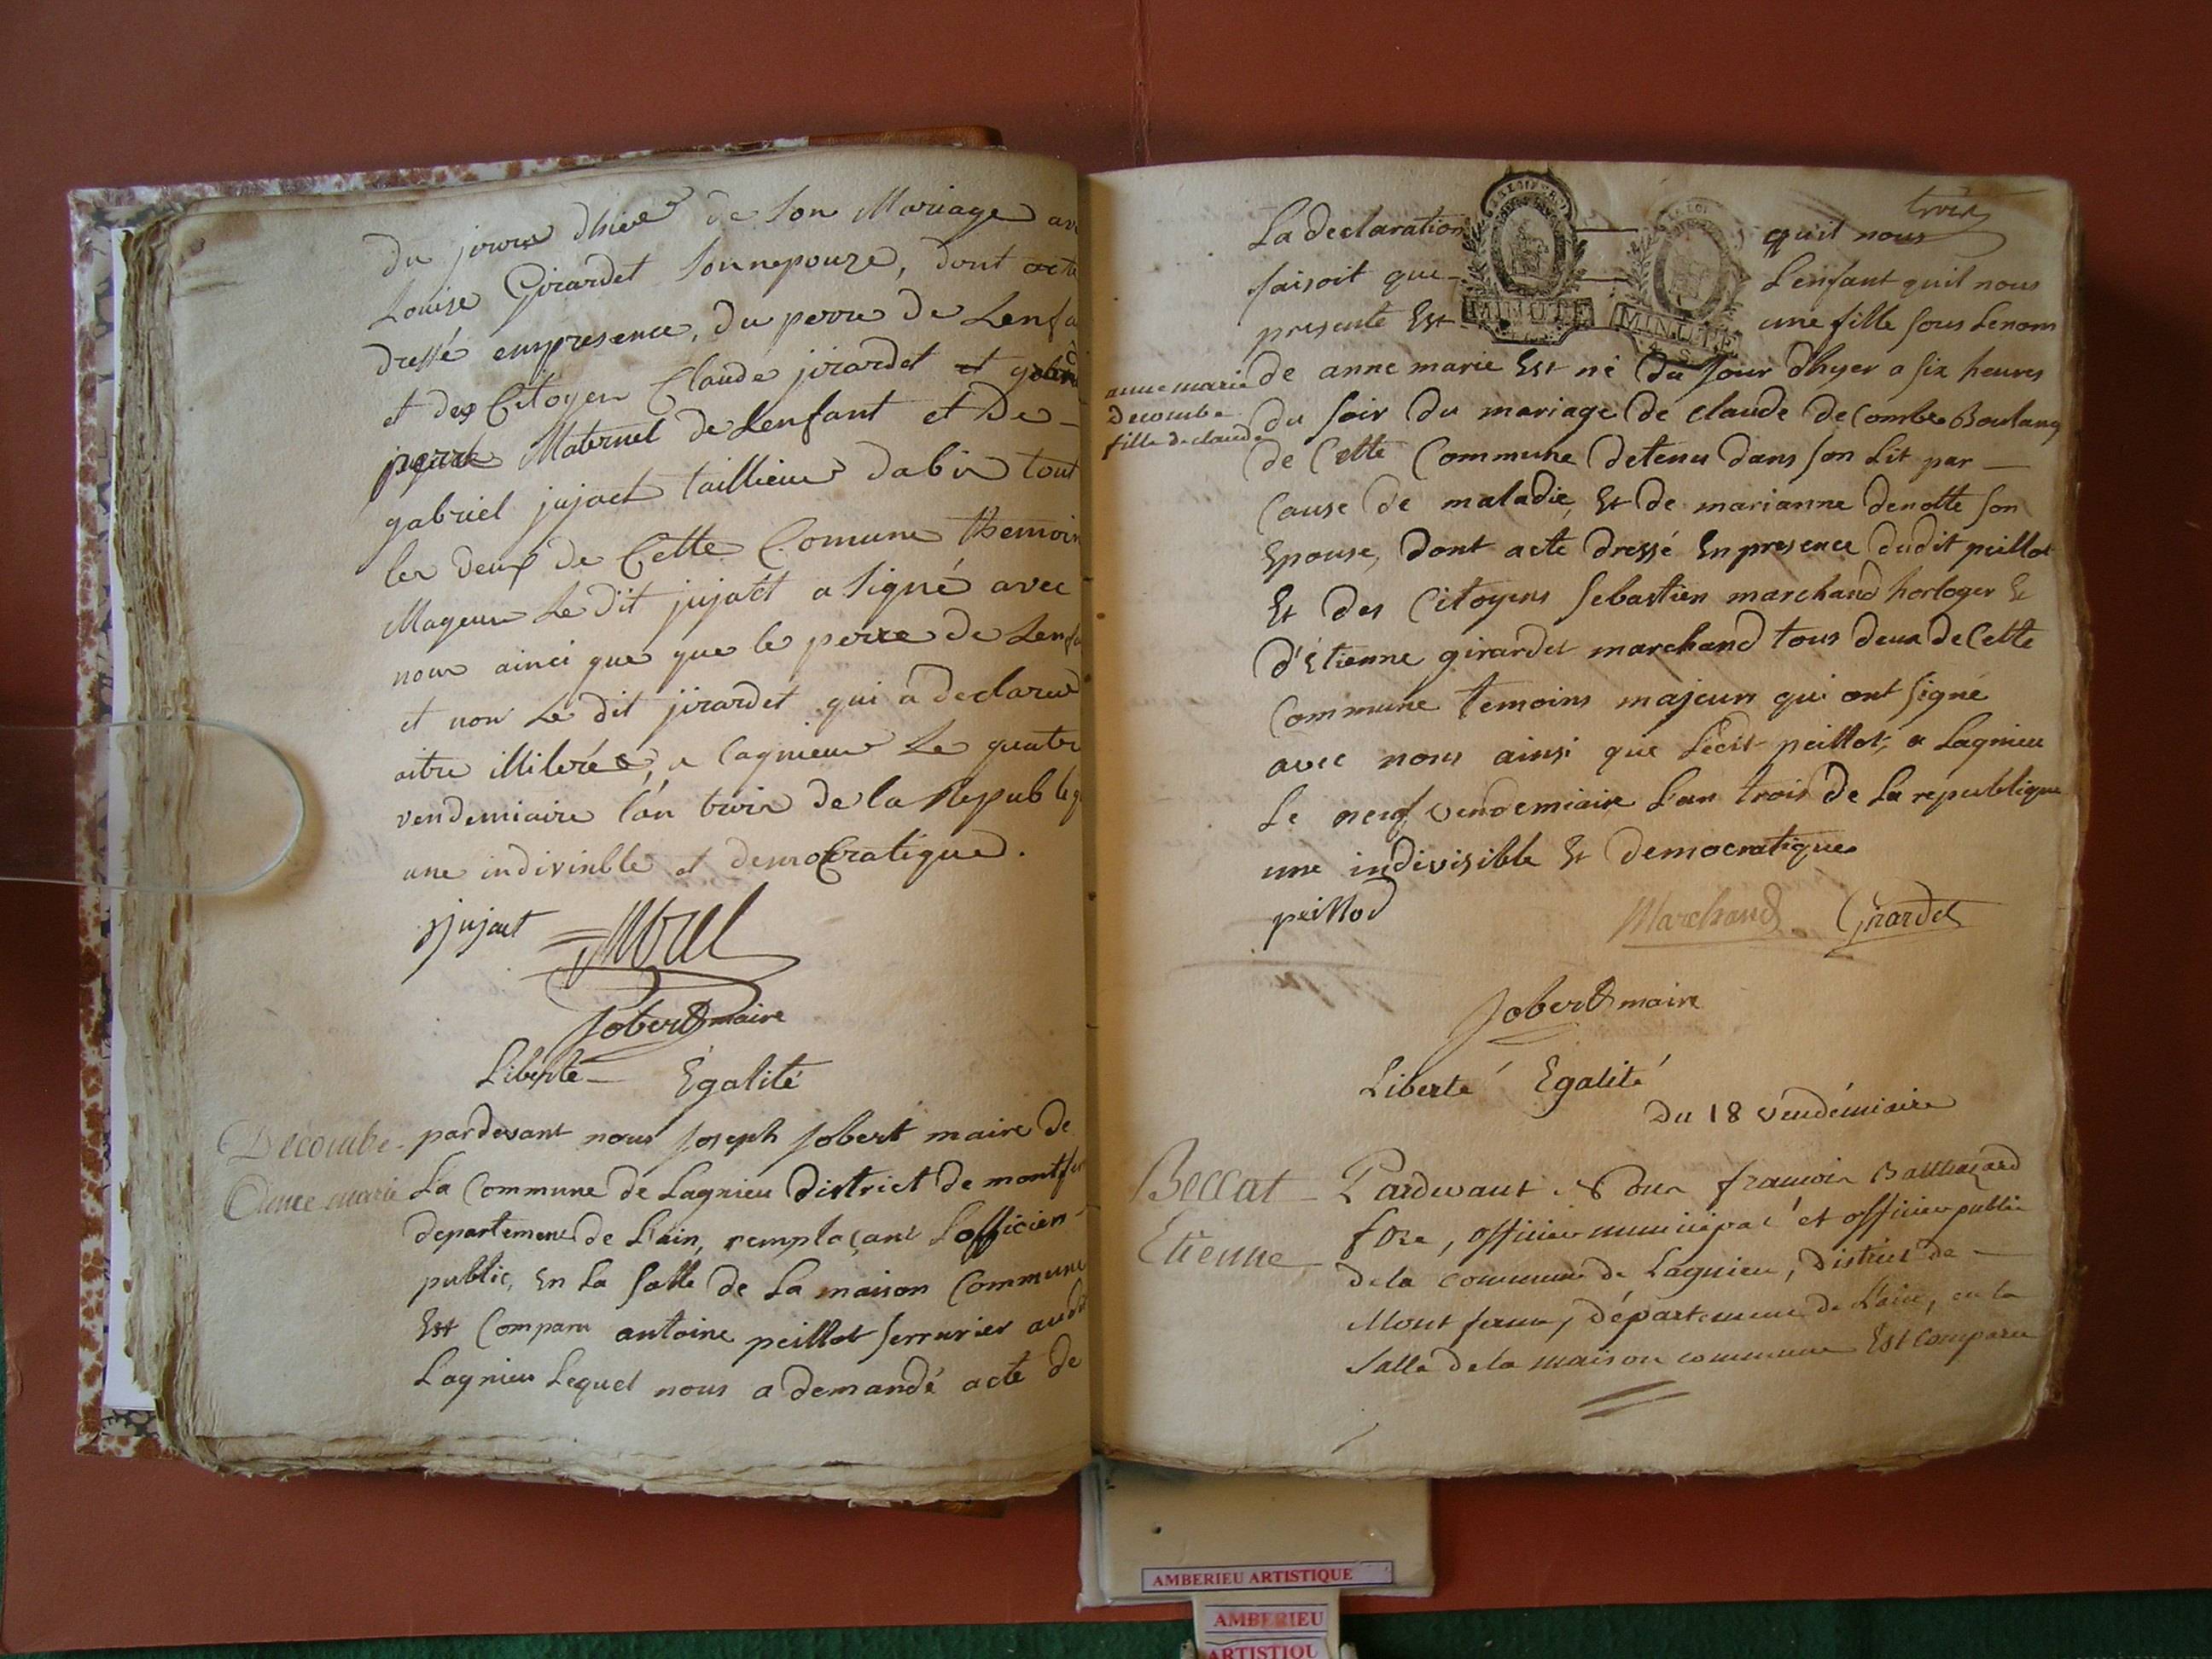 du jour dhier de son Mariage
Louise Girardet Sonnepouze, dont acte
dressé empresence, du perre de Lenfa
et des Citoyen Claude jirardet et
Maternel de Lenfant et De
gabriel jujact taillieur dabis tout
les deux de Cette Comune themoin
Mageur Le dit jujact a signé avec
nous ainci que que le perre de Lenfa
et non Le dit jirardet qui a declaré
aitre illiteré, a lagnieu Le quatre
vendemiaire l'an trois de la Republiq
une indivisible et democratique.
jujact
Jobert maire
Liberté Égalité
Decombe
Anne marie
pardevant nous Joseph Jobert maire de
La Commune de Lagnieu district de montf
departement de L'ain, remplaçant L'officier
public, En La Salle de La maison Commune
Est Comparu antoine peillot serrurier audit
Lagnieu Lequel nous a demandé acte de
trois
La declaration qu'il nous
faisoit que L'enfant quil nous
presente Est une fille sous Lenom
de anne marie Est né du jour d'hyer a six heures
anne marie
Decombe
fille de claude
du soir du mariage de claude decombe Boulang
de Cette Commune detenu dans son Lit par
Cause de maladie, Et de marianne denotte son
Epouse, dont acte dressé En presence dudit peillot
Et des Citoyens Sebastien marchand horloger Et
d'Étienne girardet marchand tous deux de Cette
Commune temoins majeurs qui ont signé
avec nous ainsi que Ledit peillot, a Lagnieu
Le neuf vendemiaire L'an trois de La republique
une indivisible Et democratique
peillod
Marchand Girardet
Jobert maire
Liberté Égalité
Du 18 vendémiaire
Beccat
Etienne
Pardevant Nous françois Balthazard
officier municipal et officier public
de la commune de Lagnieu, District de
Mont ferme, département de L'ain, en la
Salle de la maison commune Est Comparu
MINUTE
MINUTE
AMBERIEU ARTISTIQUE
AMBERIEU
ARTISTIQU